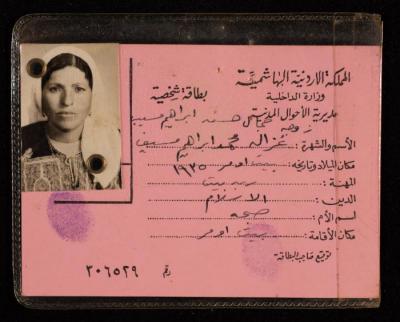 المملكة الاردنية الهاشمية
وزارة الداخلية
بطاقة شخصية
مديرية الأحوال المدنية
زوجة محمد ابراهيم
الأسم والشهرة : غزاله محمد ابراهيم
مكان الميلاد وتاريخه : بيت امر ١٩٣٥
المهنة : ربة بيت
الدين : الاسلام
اسم الأم :
مكان الأقامة : بيت امر
توقيع صاحب البطاقة :
رقم ٣٠٦٥٢٩